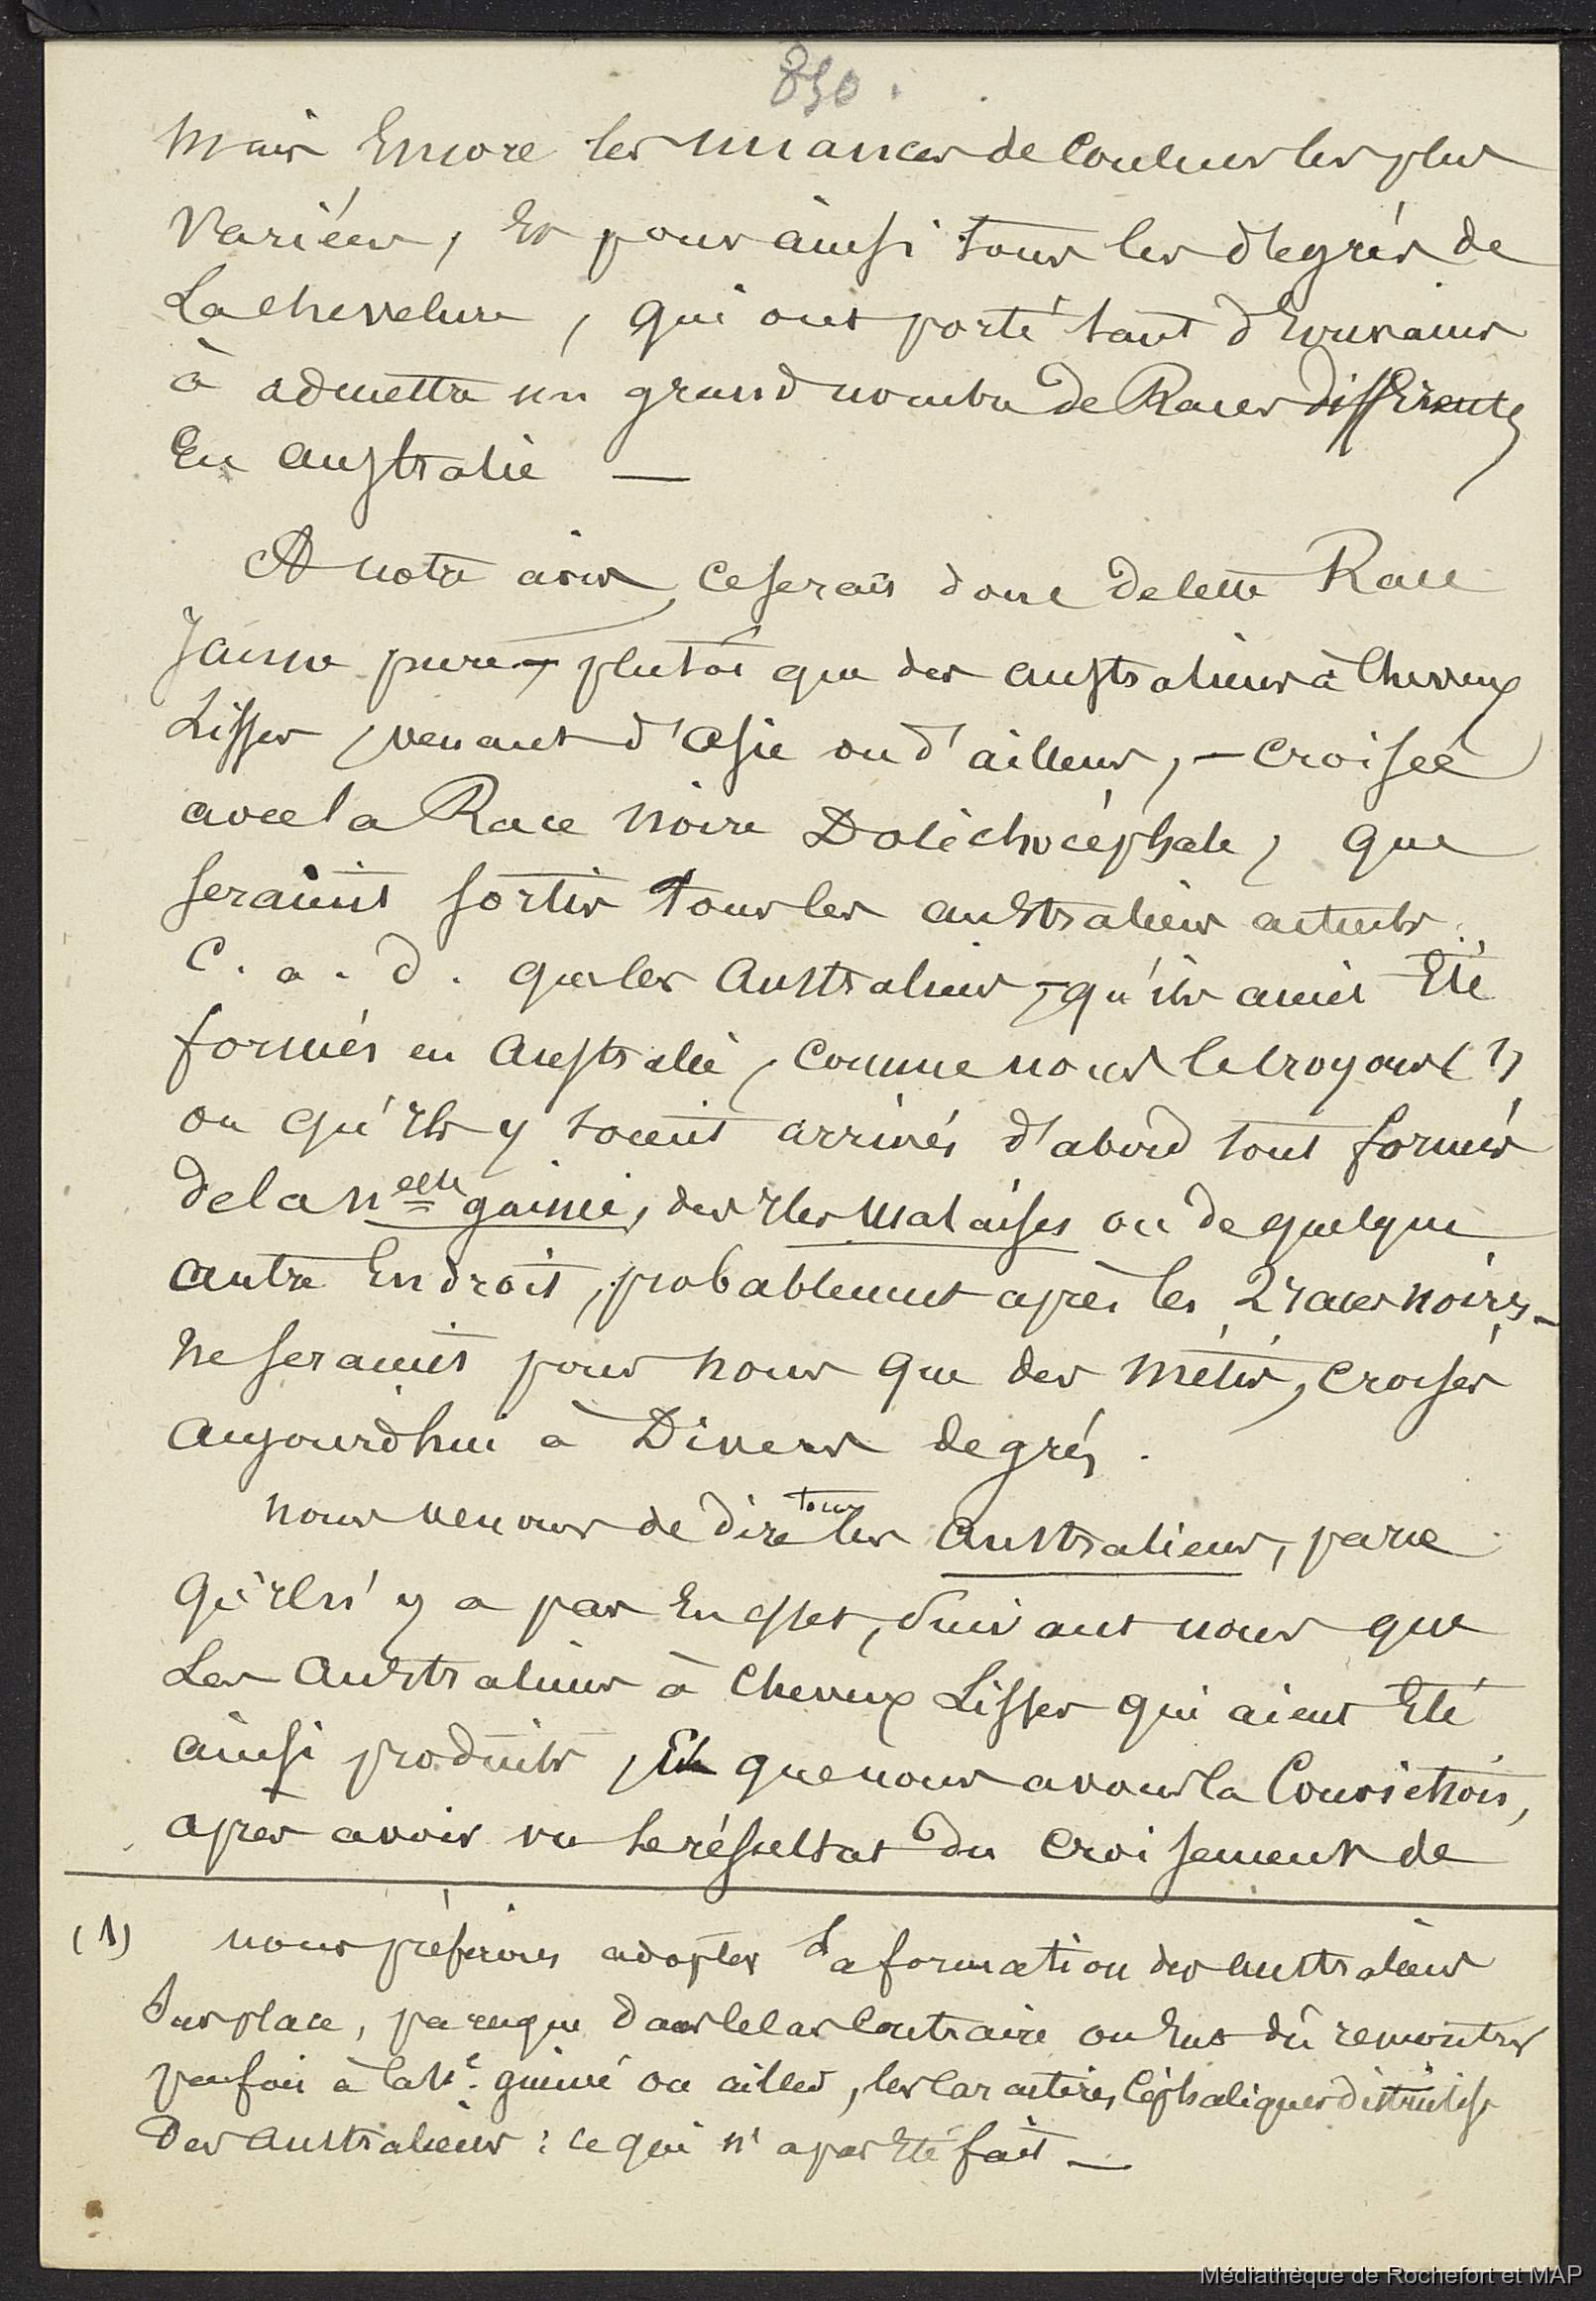 830.
mais Encore les nuances de Couleur les plus
Variées, Et pour ainsi tous les dégrés de
La chevelure, qui ont porté tant d'Ecrivains
à admettre un grand nombre de Races différentes
En australie —
A notre avis, ce serait donc de cette Race
Jaune pure, plutôt que des australiens à Cheveux
Lisses, venant d'asie ou d'ailleurs, — croisée
avec la Race noire Dolichocéphale, que
seraient sortis tous les australiens actuels.
C. a. d. que les Australiens, qu'ils aient Eté
formés en australie, comme nous le croyons (1)
ou qu'Ils y soient arrivés d'abord tout formés
de la nelle guinée, des Iles Malaises ou de quelque
autre Endroit, probablement après les 2 races noires —
ne seraient pour nous que des métis, croisés
aujourd'hui à Divers degrés.
nous venons de dire tous les australiens, parce
qu'Il n'y a pas En effet, suivant nous que
Les Australiens à Cheveux Lisses qui aient Eté
ainsi produits, Et que nous avons la Conviction,
après avoir vu le résultat du Croisement de
(1) nous préférons adopter La formation des australiens
Sur place, parceque dans le cas contraire on Eut dû rencontrer
parfois à la Nle guinée ou ailleurs, les caractères Céphaliques distinctifs
Des australiens : ce qui n'a pas Eté fait —
Médiathèque de Rochefort et MAP